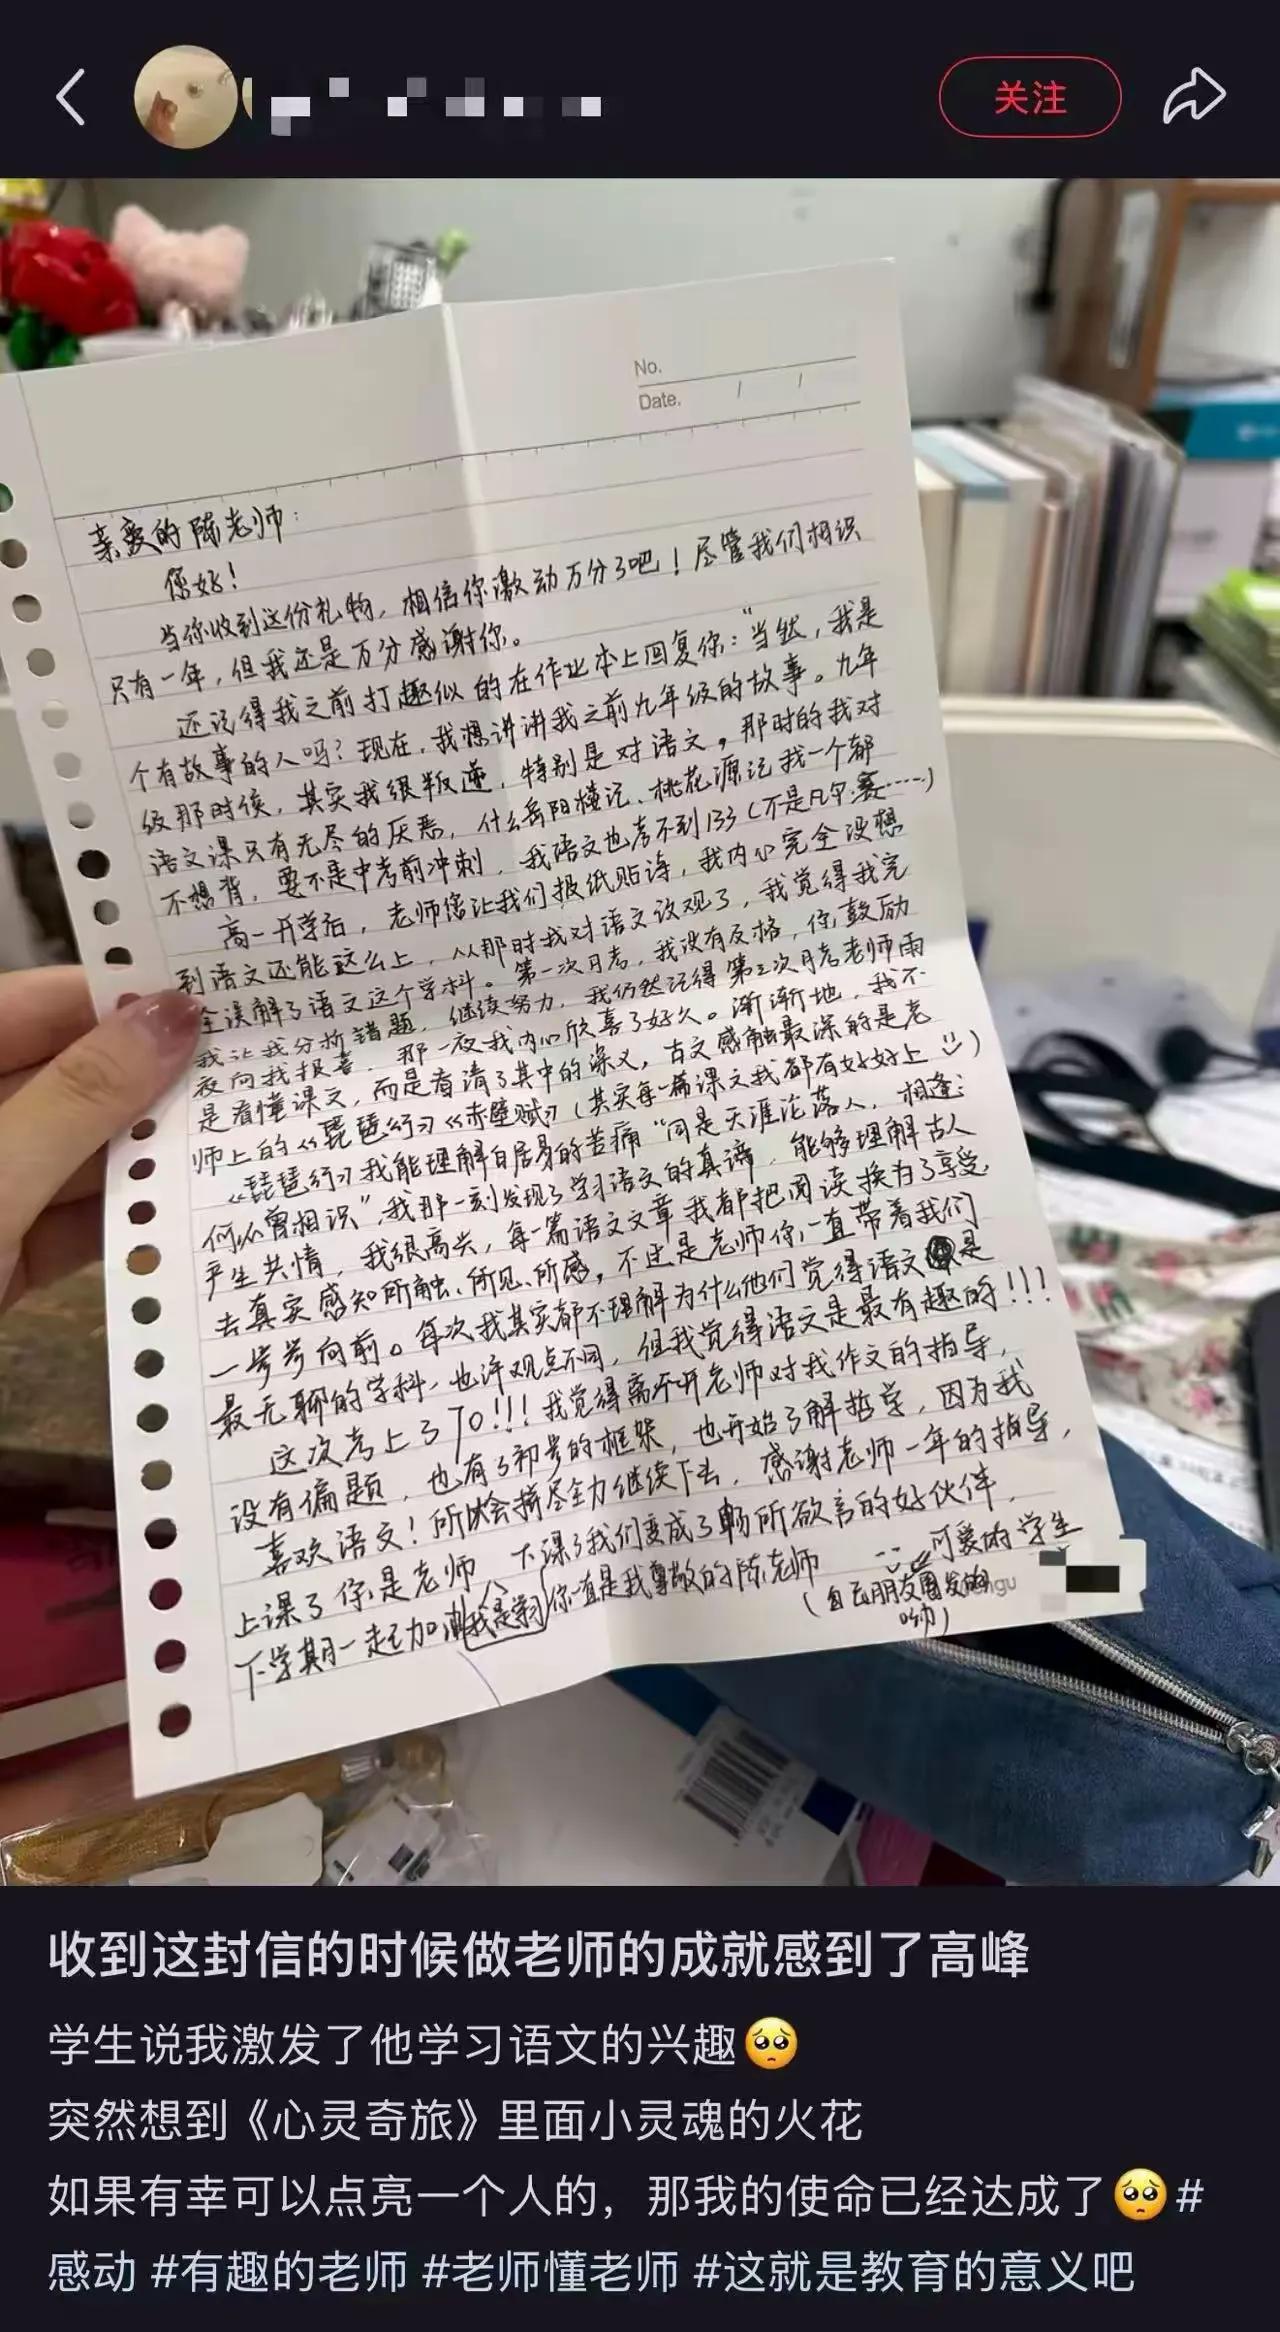 关注
No.
Date. / /
亲爱的陈老师：
您好！
当你收到这份礼物，相信你激动万分了吧！尽管我们相识
只有一年，但我还是万分感谢你。
还记得我之前打趣似的在作业本上回复你："当然，我是
个有故事的人吗？现在，我想讲讲我之前九年级的故事。九年
级那时侯，其实我很叛逆，特别是对语文，那时的我对
语文课只有无尽的厌恶，什么岳阳楼记、桃花源记我一个都
不想背，要不是中考前冲刺，我语文也考不到133（不是凡尔赛……）
高一开学后，老师您让我们报纸贴诗，我内心完全没想
到语文还能这么上，从那时我对语文改观了，我觉得我完
全误解了语文这个学科。第一次月考，我没有及格，你鼓励
我让我分析错题，继续努力，我仍然记得第三次月考老师雨
夜向我报喜，那一夜我内心欣喜了好久。渐渐地，我不
是看懂课文，而是看清了其中的深义，古文感触最深的是老
师上的《琵琶行》《赤壁赋》（其实每一篇课文我都有好好上）
《琵琶行》我能理解白居易的苦痛"同是天涯沦落人，相逢
何必曾相识"，我那一刻发现了学习语文的真谛，能够理解古人
产生共情，我很高兴，每一篇语文文章我都把阅读换为了享受
去真实感知所触、所见、所感，不过是老师你一直带着我们
一步步向前。每次我其实都不理解为什么他们觉得语文是
最无聊的学科，也许观点不同，但我觉得语文是最有趣的！！！
这次考上了70！！！我觉得离不开老师对我作文的指导，
没有偏题，也有了初步的框架，也开始了解哲学，因为我
喜欢语文！所以会拼尽全力继续下去，感谢老师一年的指导，
上课了你是老师 下课了我们变成了畅所欲言的好伙伴，
下学期一起加油 你一直是我尊敬的陈老师
可爱的学生
收到这封信的时候做老师的成就感到了高峰
学生说我激发了他学习语文的兴趣🥺
突然想到《心灵奇旅》里面小灵魂的火花
如果有幸可以点亮一个人的，那我的使命已经达成了🥺#
感动 #有趣的老师 #老师懂老师 #这就是教育的意义吧